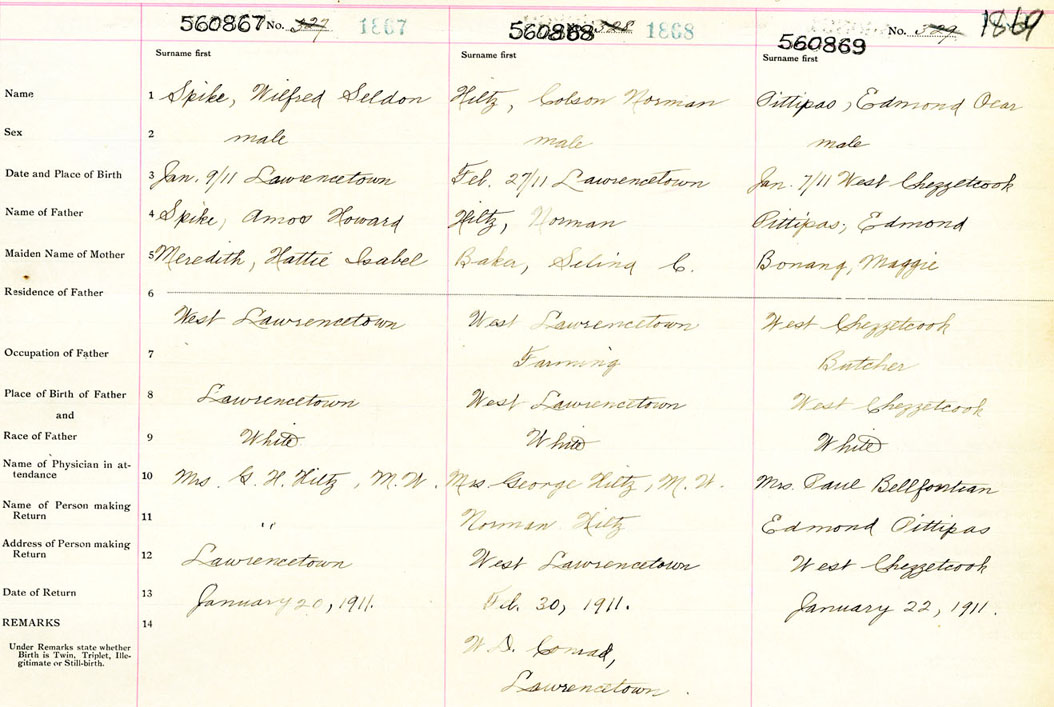 560867 No. 327 1867
560868 328 1868
560869 No. 329 1869
Surname first Surname first Surname first
Name 1 Spike, Wilfred Seldon Hiltz, Colson Norman Pittipas, Edmond Ocar
Sex 2 male male male
Date and Place of Birth 3 Jan. 9/11 Lawrencetown Feb. 27/11 Lawrencetown Jan. 7/11 West Chezzetcook
Name of Father 4 Spike, Amos Howard Hiltz, Norman Pittipas, Edmond
Maiden Name of Mother 5 Meredith, Hattie Isabel Baker, Selina C. Bonang, Maggie
Residence of Father 6
West Lawrencetown West Lawrencetown West Chezzetcook
Occupation of Father 7 Farming Butcher
Place of Birth of Father 8 Lawrencetown West Lawrencetown West Chezzetcook
and
Race of Father 9 White White White
Name of Physician in at-
tendance 10 Mrs. G. H. Hiltz, M. W. Mrs George Hiltz, M. W. Mrs. Paul Bellfontian
Name of Person making
Return 11 " Norman Hiltz Edmond Pittipas
Address of Person making
Return 12 Lawrencetown West Lawrencetown West Chezzetcook
Date of Return 13 January 20, 1911. Feb. 30, 1911. January 22, 1911.
REMARKS 14
Under Remarks state whether
Birth is Twin, Triplet, Ille-
gitimate or Still-birth.
W. D. Conrad,
Lawrencetown.